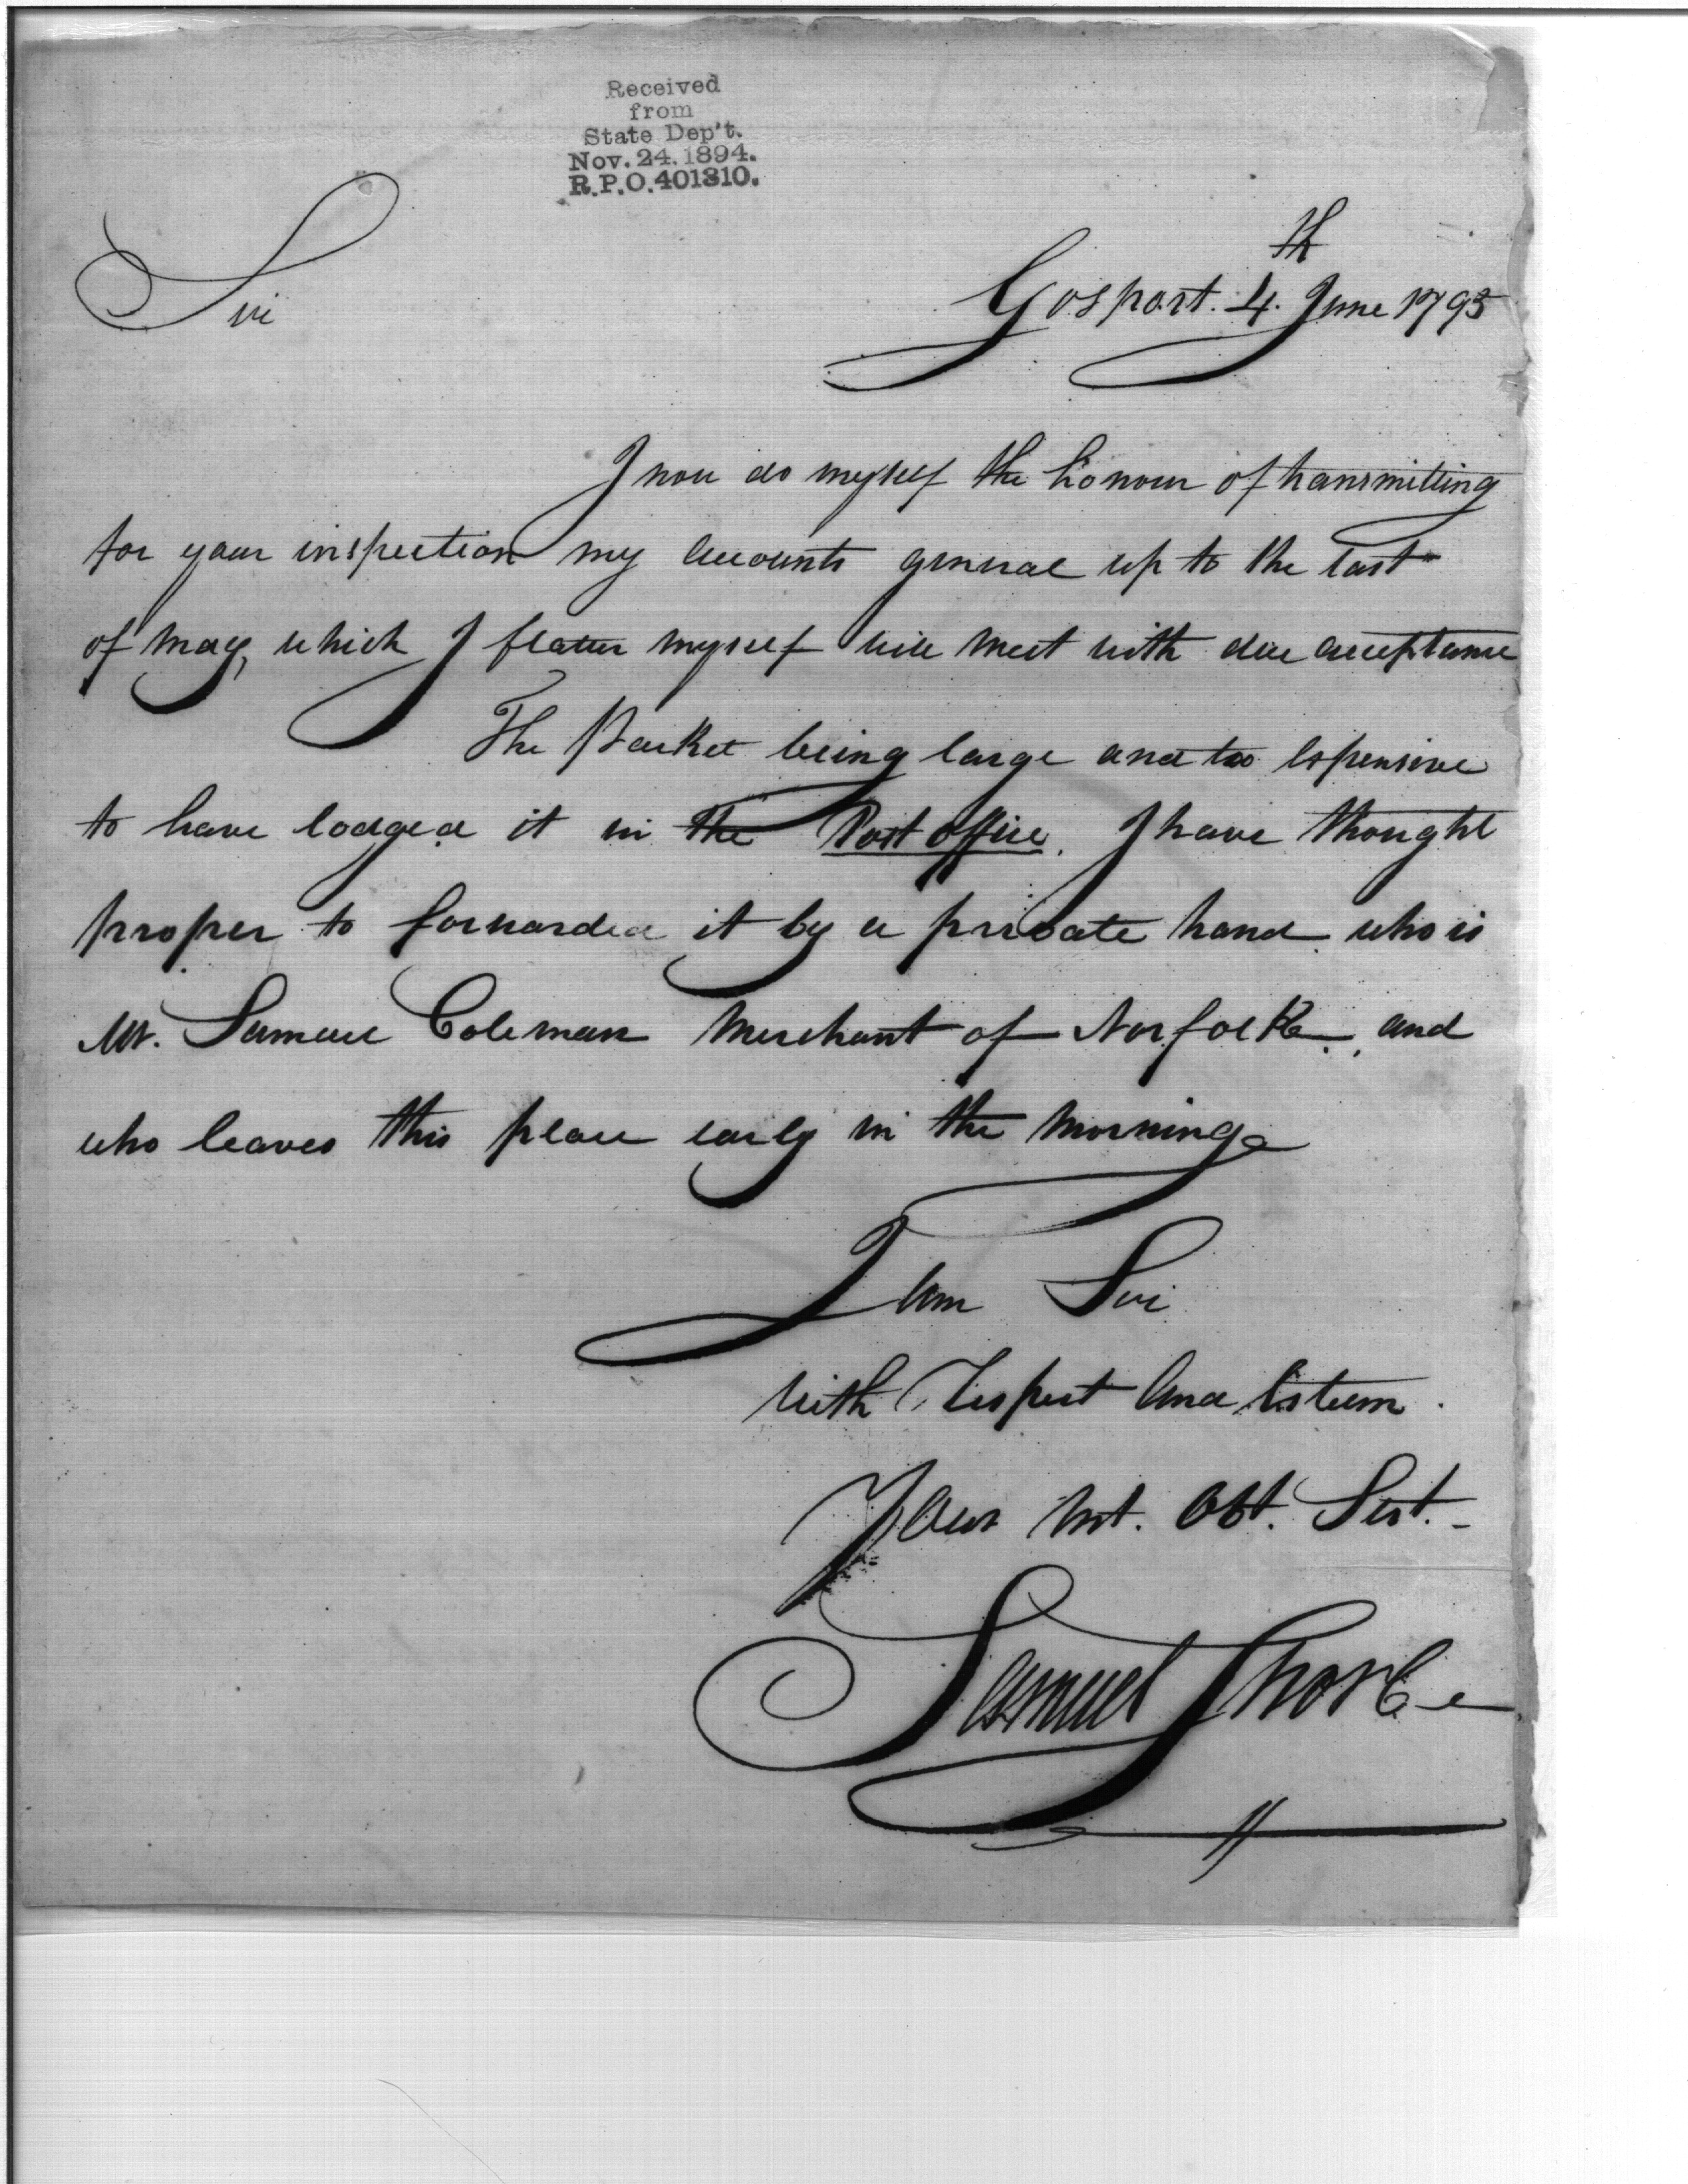 Received
from
State Dep't.
Nov. 24. 1894.
R.P.O. 401310.
Sir
Gosport. 4th June 1795
I now do myself the honour of transmitting
for your inspection my accounts general up to the last
of May, which I flatter myself will meet with due acceptance
The Packet being large and too Expensive
to have lodged it in the Post office. I have thought
proper to forwarded it by a private hand who is
Mr. Samuel Coleman Merchant of Norfolk, and
who leaves this place early in the morning
I am Sir
with Respect And Esteem.
Your Mt. Obt. Sert.
Samuel Thorbe